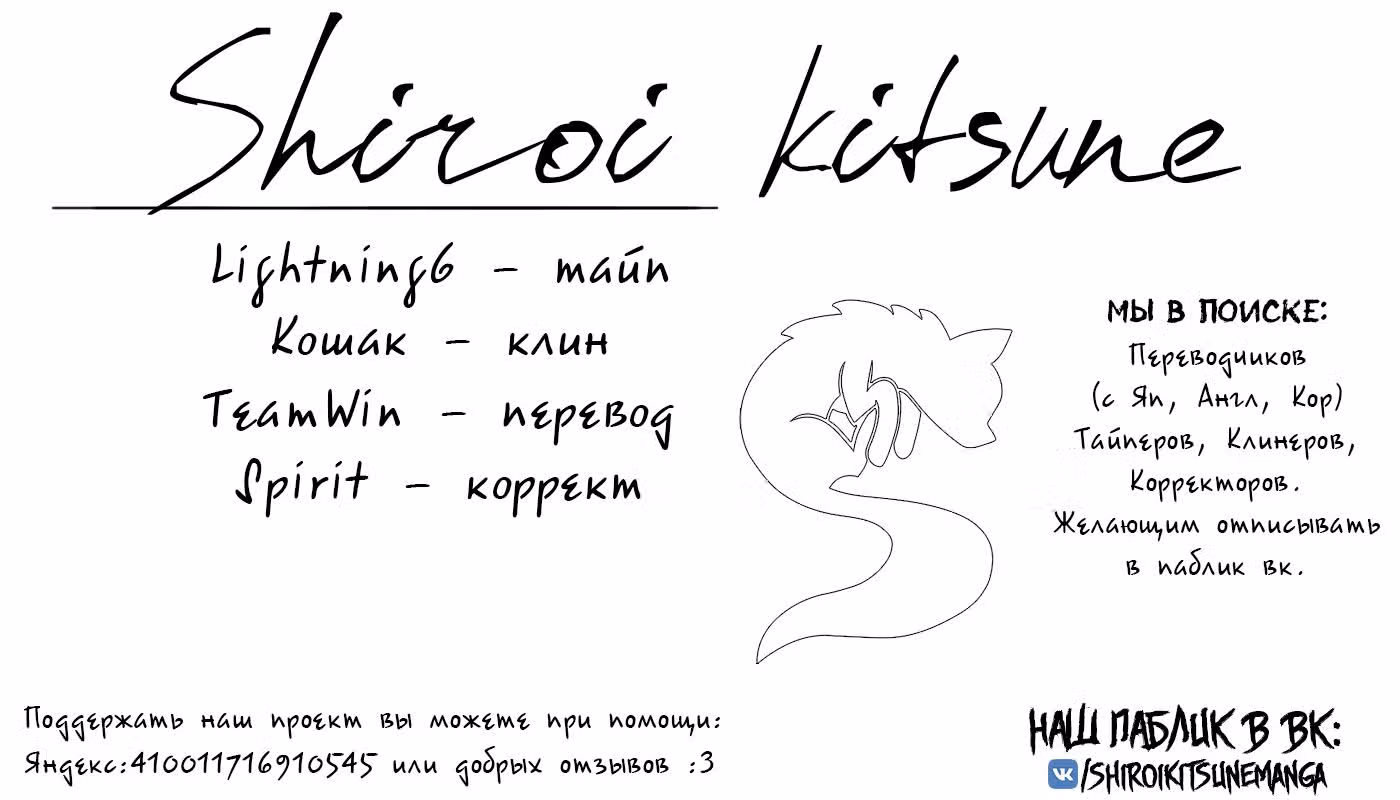 Shiroi kitsune
Lightning6 – тайп
Кошак – клин
TeamWin – перевод
Spirit – коррект
МЫ В ПОИСКЕ:
Переводчиков
(с Яп, Англ, Кор)
Тайперов, Клинеров,
Корректоров.
Желающим отписывать
в паблик вк.
Поддержать наш проект вы можете при помощи:
Яндекс:410011716910545 или добрых отзывов :3
НАШ ПАБЛИК В ВК:
/SHIROIKITSUNEMANGA